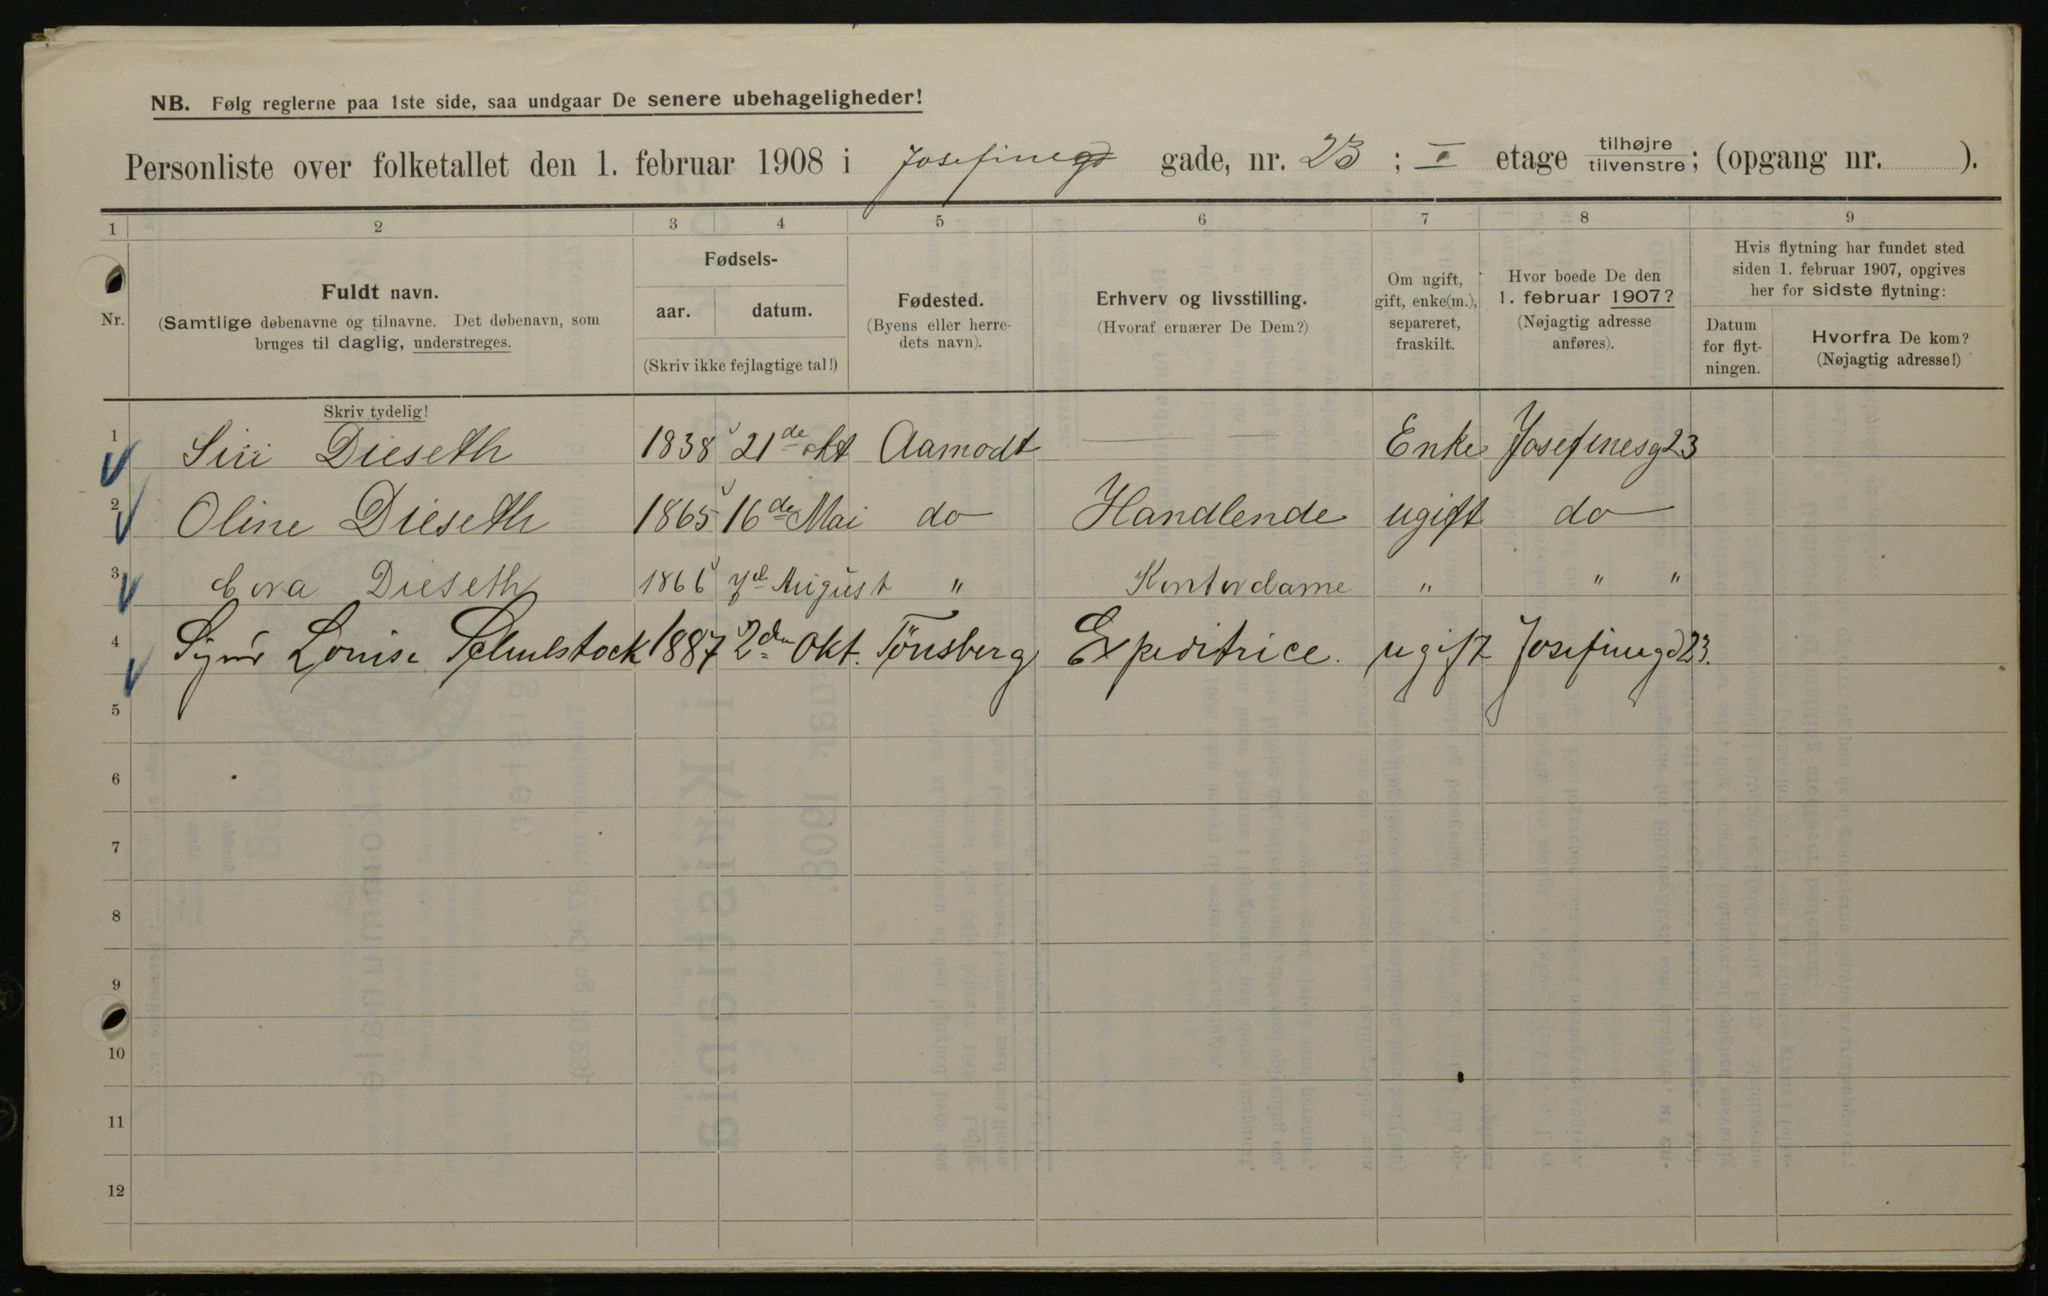 NB. Følg reglerne paa 1ste side, saa undgaar De senere ubehageligheder!
Personliste over folketallet den 1. februar 1908 i Josefinegd gade, nr. 23 ; I etage tilhøjre tilvenstre; (opgang nr. ).
1 2 3 4 5 6 7 8 9
Nr.
Fuldt navn.
(Samtlige døbenavne og tilnavne. Det døbenavn, som
bruges til daglig, understreges.
Skriv tydelig!
Fødsels-
aar. datum.
(Skriv ikke fejlagtige tal!)
Fødested.
(Byens eller herre-
dets navn).
Erhverv og livsstilling.
(Hvoraf ernærer De Dem?)
Om ugift,
gift, enke(m.),
separeret,
fraskilt.
Hvor boede De den
1. februar 1907?
(Nøjagtig adresse
anføres).
Hvis flytning har fundet sted
siden 1. februar 1907, opgives
her for sidste flytning:
Datum
for flyt-
ningen.
Hvorfra De kom?
(Nøjagtig adresse!)
1 Siri Dieseth 1838 21de okt Aamodt — — Enke Josefinesg 23
2 Oline Dieseth 1865 16de Mai do Handlende ugift do
3 Cora Dieseth 1866 7de August " Kontordame " " "
4 Louise 1887 2den Okt. Tönsberg Expeditrice. ugift Josefinegd 23.
5
6
7
8
9
10
11
12